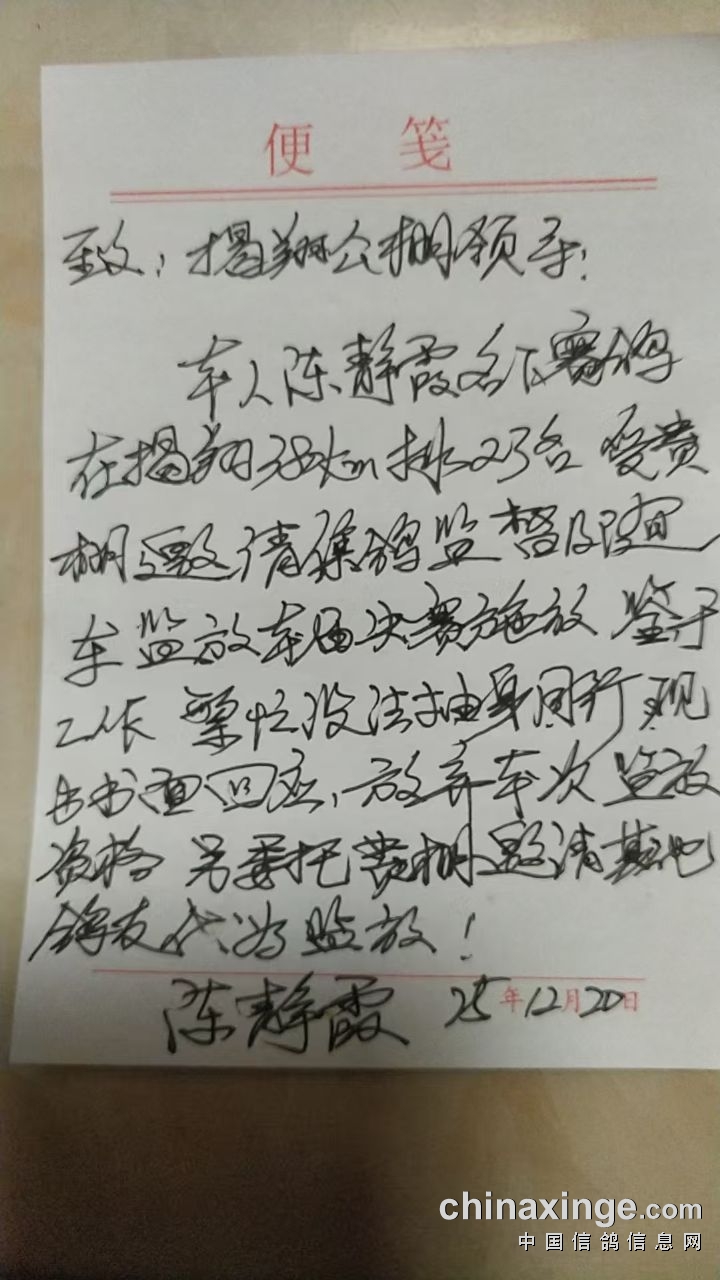 便 笺
至致：揭翔公棚领导：
本人陈静霞名下赛鸽
在揭翔 排23名 受贵
棚邀请集鸽监督及随
车监放本届决赛施放 鉴于
工作繁忙没法抽身同行 现
出书面回应，放弃本次监放
资格 另委托贵棚邀请其他
鸽友代为监放！
陈静霞 25年12月20日
chinaxinge.com
中国信鸽信息网